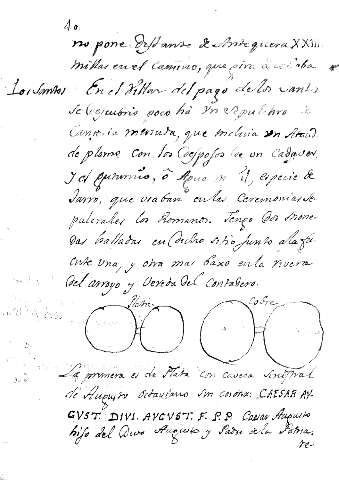 40.
no pone distante de Antequera XXIII
millas en el camino, que gira
Los Santos En el Pillar del pago de los Santos
se descubrio poco há un sepulchro de
Canteria menuda, que incluia un Ataud
de plomo con los Despojos de un Cadaver,
y el especie de
Jarro, que usaban en las Ceremonias se-
pulcrales los Romanos. Tengo dos mone-
das halladas en Dicho sitio junto a la fu-
ente una, y otra mas baxo en la rivera
del arroyo y Vereda del Contadero.
Plata Cobre
La primera es de Plata con caveza
de Augusto Octaviano sin corona: CAESAR AV-
GVST. DIVI. AVGVST. F. P. P Caesar Augusto
hijo del Divo Augusto y Padre de la Patria.
re-